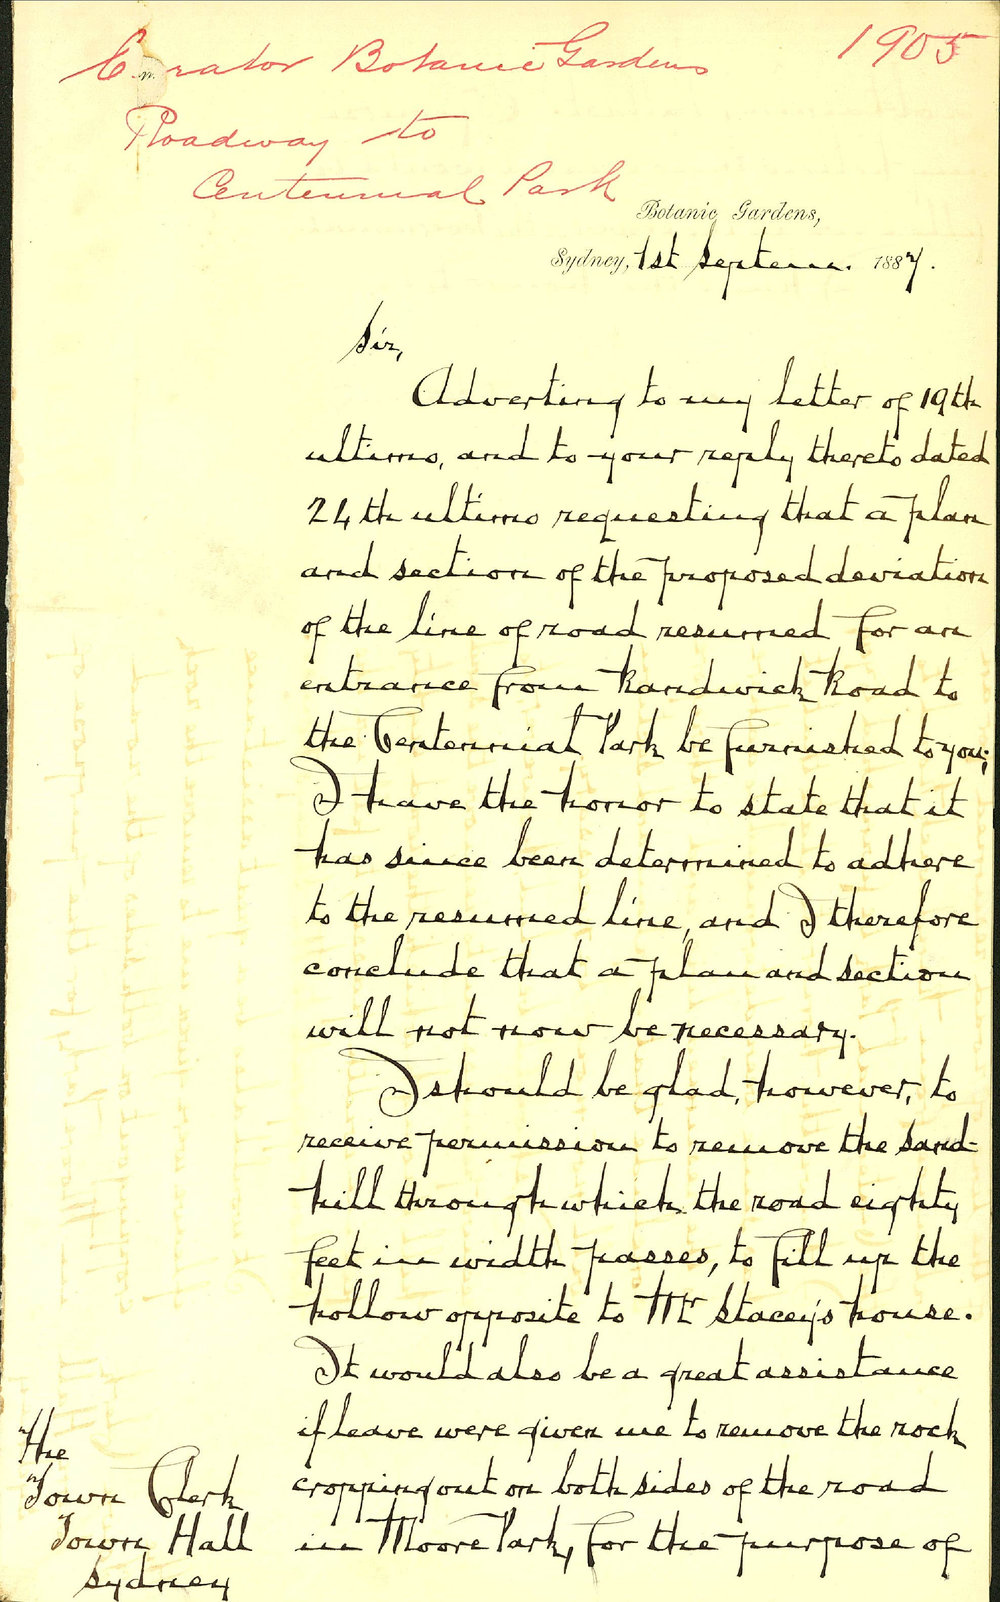 Curator Botanic Gardens 1905
Roadway to
Centennial Park
Botanic Gardens,
Sydney, 1st Septem. 1887.
Sir,
Adverting to my letter of 19th
ultimo, and to your reply thereto dated
24th ultimo requesting that a plan
and section of the proposed deviation
of the line of road resumed for an
entrance from Randwick Road to
the Centennial Park be furnished to you;
I have the honor to state that it
has since been determined to adhere
to the resumed line, and I therefore
conclude that a plan and section
will not now be necessary.
I should be glad, however, to
receive permission to remove the sand-
hill through which the road eighty
feet in width passes, to fill up the
hollow opposite to Mr Stacey's house.
It would also be a great assistance
if leave were given me to remove the rock
cropping out on both sides of the road
in Moore Park, for the purpose of
The
Town Clerk
Town Hall
Sydney